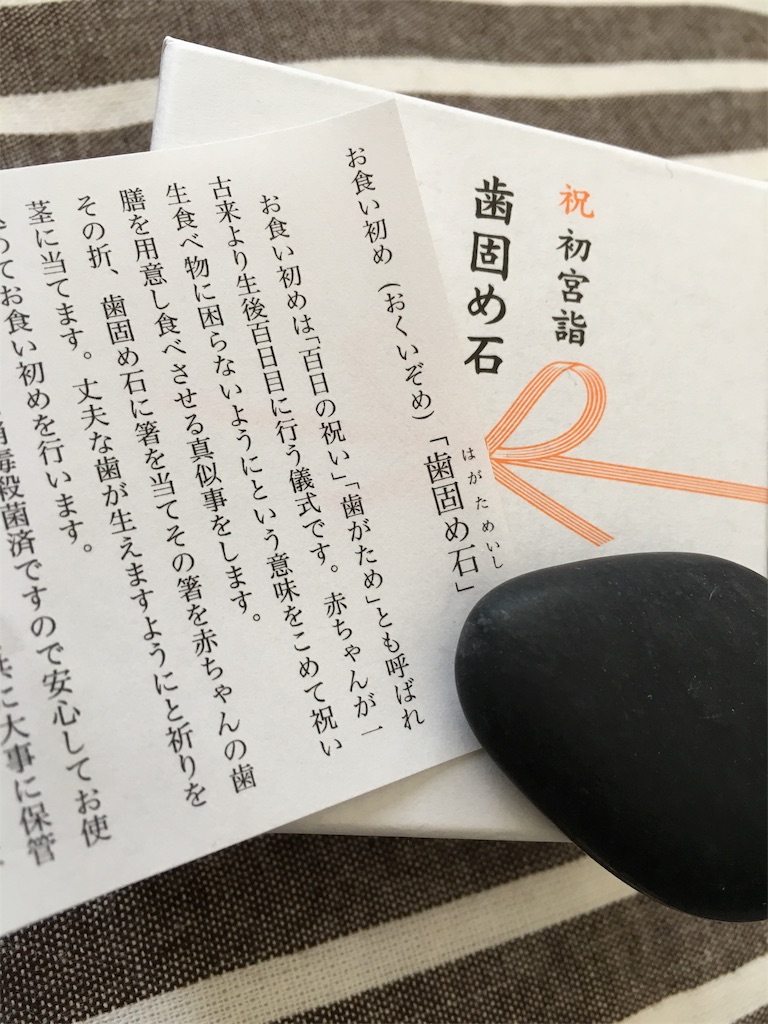 祝 初宮詣
歯固め石
お食い初め（おくいぞめ）「歯固め石」
はがためいし
お食い初めは「百日の祝い」「歯がため」とも呼ばれ
古来より生後百日目に行う儀式です。赤ちゃんが一
生食べ物に困らないようにという意味をこめて祝い
膳を用意し食べさせる真似事をします。
その折、歯固め石に箸を当てその箸を赤ちゃんの歯
茎に当てます。丈夫な歯が生えますようにと祈りを
めてお食い初めを行います。
消毒殺菌済ですので安心してお使
に大事に保管